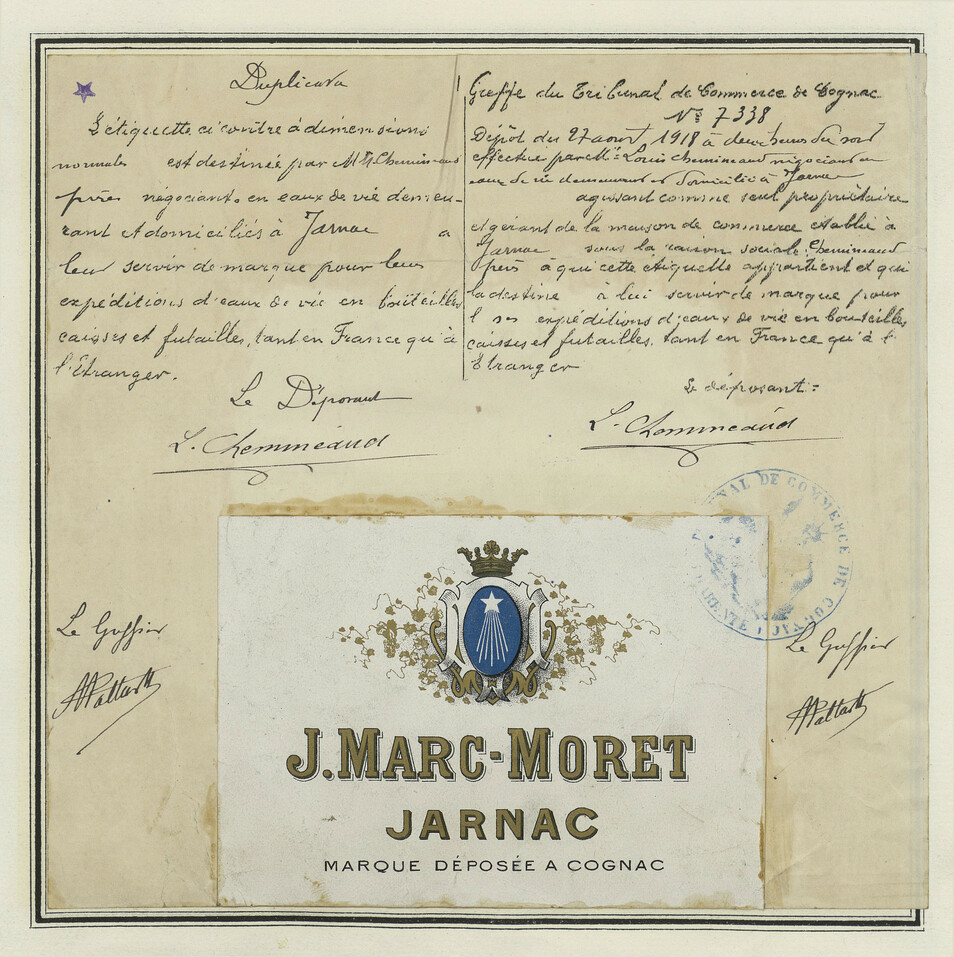 Duplicata
L'étiquette ci contre à dimensions
normales est destinée par MM. Chemineaud
père négociants en eaux de vie demeu-
rant et domiciliés à Jarnac a
leur servir de marque pour leurs
expéditions d'eaux de vie en bouteilles
caisses et futailles, tant en France qu'à
l'Etranger.
Le Déposant
L. Chemineaud
Greffe du Tribunal de Commerce de Cognac
N° 7338
Dépôt du 27 aout 1918 à deux heures du soir
effectué par M. Louis Chemineaud négociant en
eaux de vie demeurant et domicilié à Jarnac
agissant comme seul propriétaire
et gérant de la maison de commerce établie à
Jarnac sous la raison sociale: Chemineaud
père à qui cette étiquette appartient et qui
la destine à lui servir de marque pour
ses expéditions d'eaux de vie en bouteilles
caisses et futailles, tant en France qu'à l'
Etranger
Le déposant:
L. Chemineaud
TRIBUNAL DE COMMERCE DE COGNAC
CHARENTE
Le Greffier
Le Greffier
J. MARC-MORET
JARNAC
MARQUE DÉPOSÉE A COGNAC